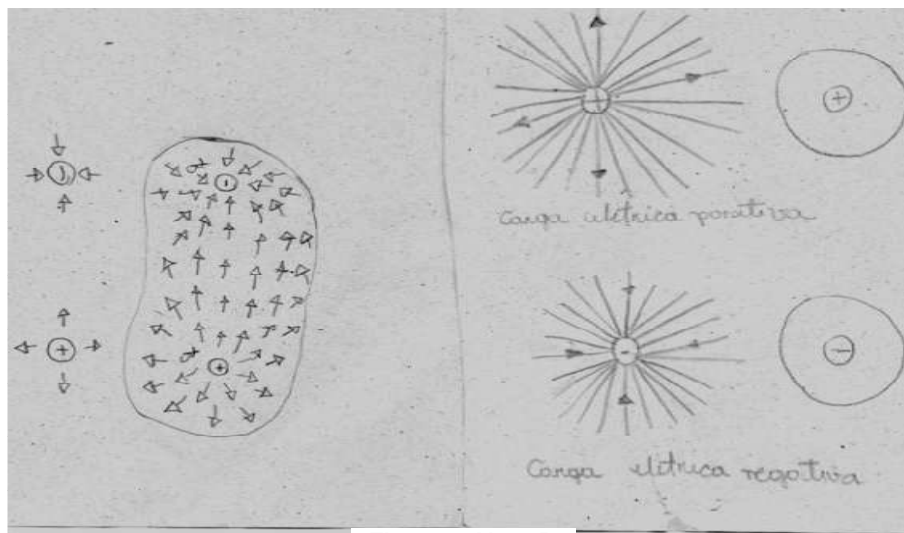 Carga elétrica positiva
Carga elétrica negativa